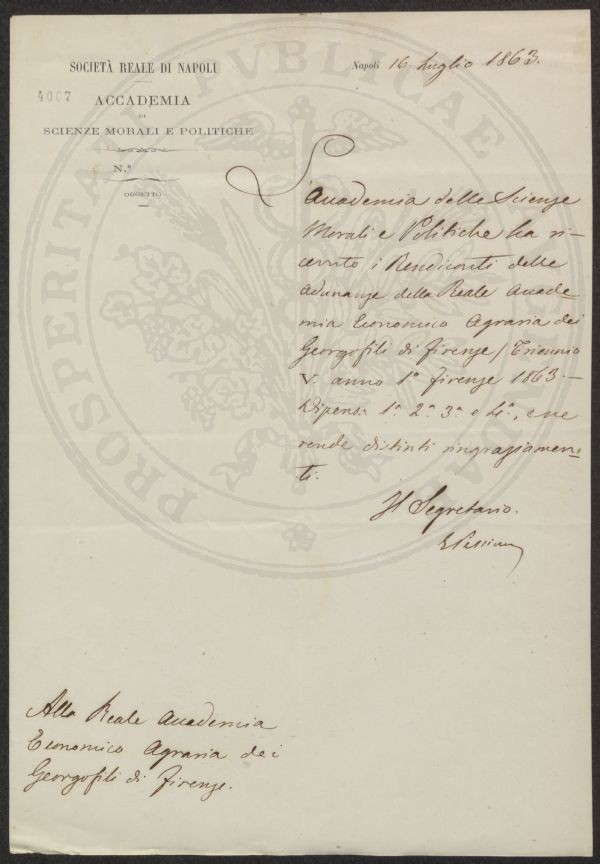 SOCIETÀ REALE DI NAPOLI
4007
ACCADEMIA
DI
SCIENZE MORALI E POLITICHE
N.º
OGGETTO
Napoli 16 Luglio 1863.
L'Accademia delle Scienze
Morali e Politiche ha ri-
cevuto i Rendiconti delle
adunanze della Reale Accade-
mia Economico Agraria dei
Georgofili di Firenze / Triennio
V. anno 1º Firenze 1863.—
Dipense 1ª 2ª 3ª e 4ª, e ne
rende distinti ringraziamen-
ti.
Il Segretario.
Alla Reale Accademia
Economico Agraria dei
Georgofili di Firenze.
PROSPERITATI PUBLICAE